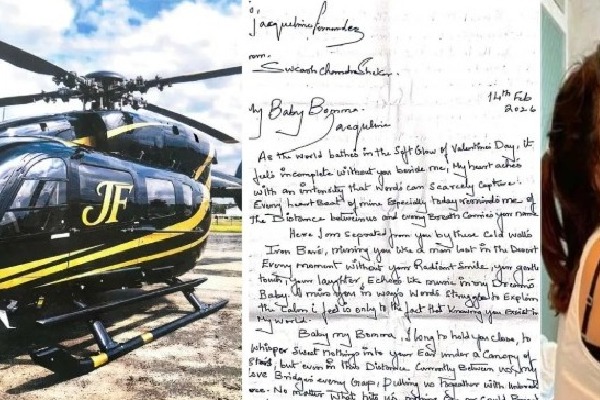 JF
Jacqueline Fernandez
Sukash Chandrashekar.
14th Feb
2026
My Baby Bomma
Jacqueline
As the world bathes in the Soft Glow of Valentines Day, it
feels incomplete without you beside me, My heart aches
with an intensity that Words can scarcely Capture.
Every heart Beat of mine Especially today Reminds me of
the Distance between us and every Breath Carries your Name
Here I am separated from you by these Cold walls
Iron Bars, missing you like a man lost in the Desert
Every moment without your Radiant Smile, your gentle
touch, your laughter, Echoes like music in my Dreams
Baby I miss you in ways Words Struggle to Explain
the Calm i feel is only to the fact that Knowing you Exist in
My world.
Baby my Bomma, I long to hold you close, to
whisper Sweet Nothings into your Ear under a Canopy of
Stars, but even in this Distance Currently Between us, only
love Bridges every Gap, Pulling us together with
No matter What